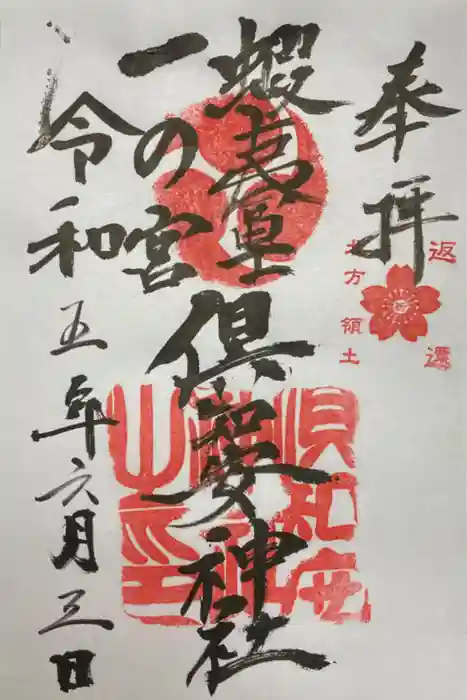 奉拝
返還
北方領土
蝦夷富士
一の宮
倶知安神社
倶知安
神社
之印
令和五年六月三日